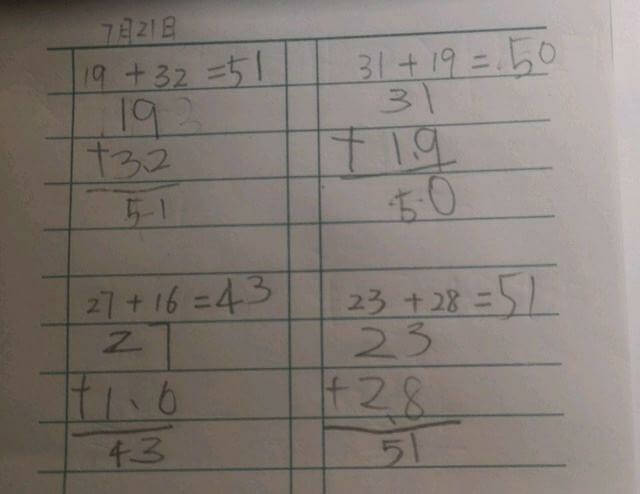 7月21日
19 + 32 = 51
19
+32
51
31 + 19 = 50
31
+19
50
27 + 16 = 43
27
+16
43
23 + 28 = 51
23
+28
51